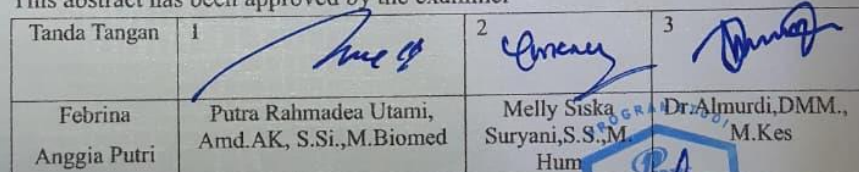 This abstract has been approved by the examiner
Tanda Tangan 1 2 3
Febrina
Anggia Putri
Putra Rahmadea Utami,
Amd.AK, S.Si.,M.Biomed
Melly Siska
Suryani,S.S.,M.
Hum
Dr.Almurdi,DMM.,
M.Kes
PROGRAM STUDI